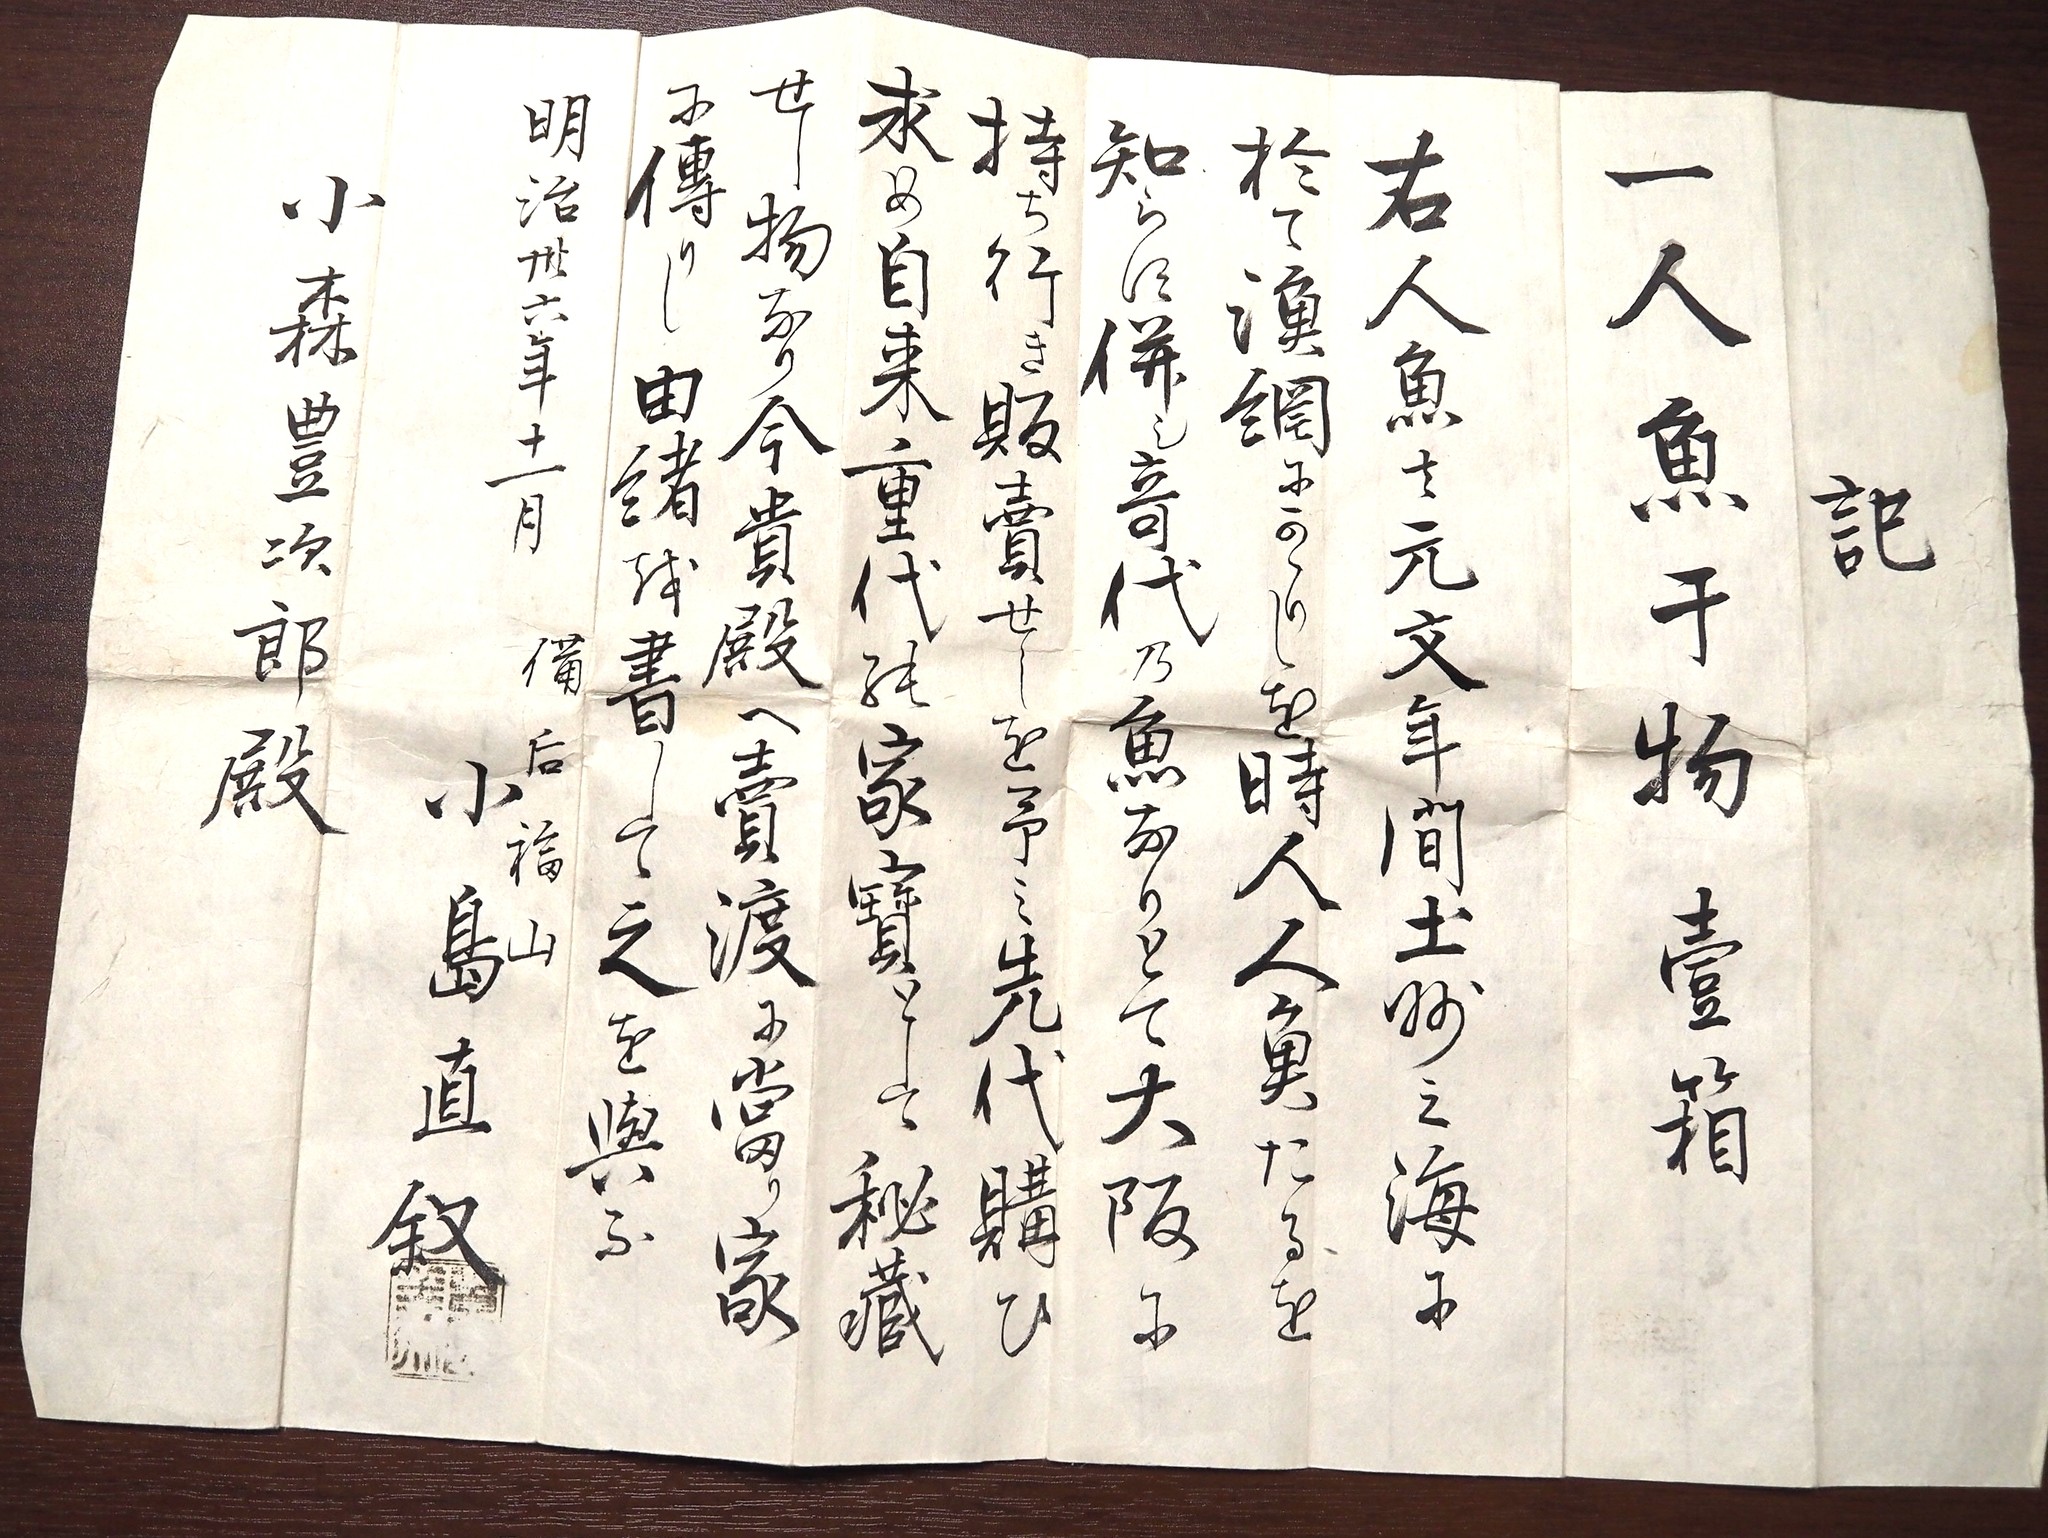 記
一人魚干物 壹箱
右人魚は元文年間土州之海に
於て漁網にかゝりしを時人人魚たるを
知らす併し奇代乃魚なりとて大阪に
持ち行き販賣せしを予之先代購ひ
求め自来重代の家寶として秘藏
せし物なり今貴殿へ賣渡に當り家
に傳りし由諸を書して之を與ふ
明治卅六年十一月
備后福山
小島直叙
小森豊次郎殿